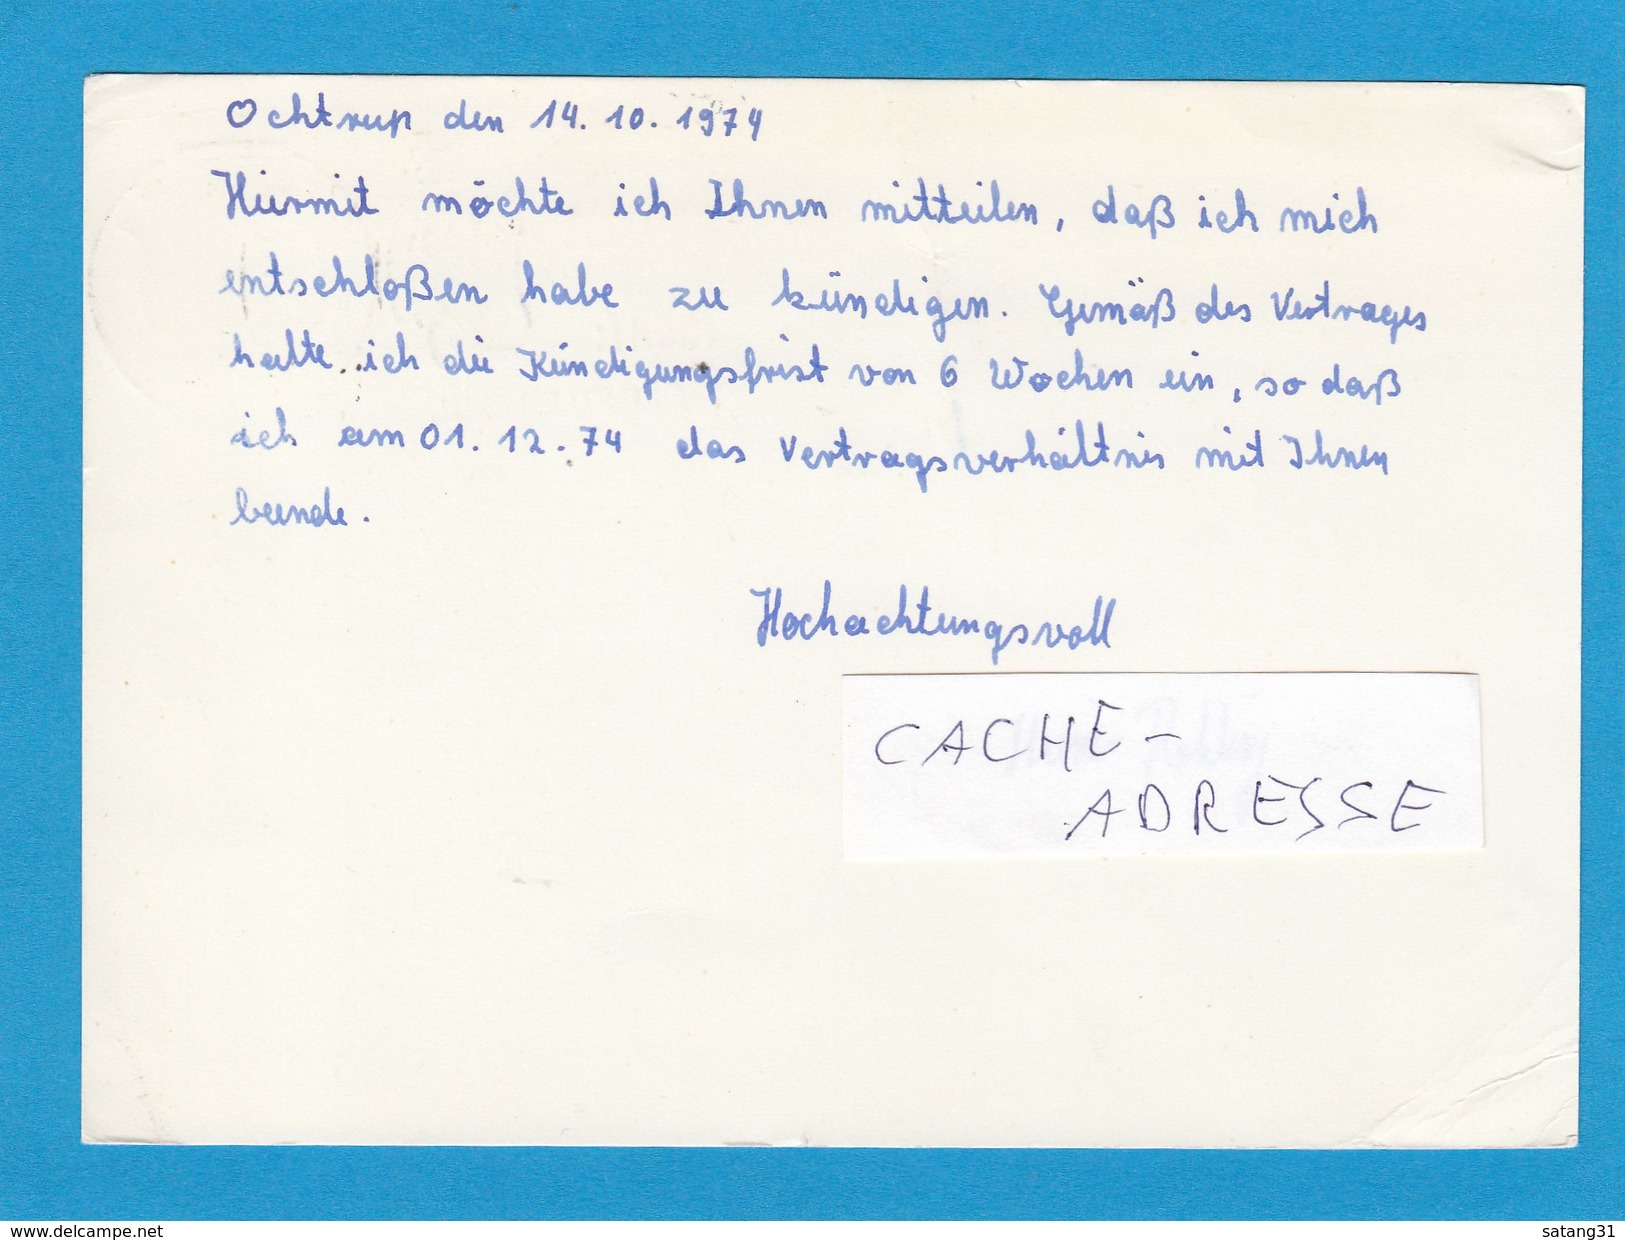 Ochtrup den 14.10.1974
Hiermit möchte ich Ihnen mitteilen, daß ich mich
entschloßen habe zu kündigen. Gemäß des Vertrages
halte ich die Kündigungsfrist von 6 Wochen ein, so daß
ich am 01.12.74 das Vertragsverhältnis mit Ihnen
beende.
Hochachtungsvoll
CACHE-
ADRESSE
www.delcampe.net
satang31